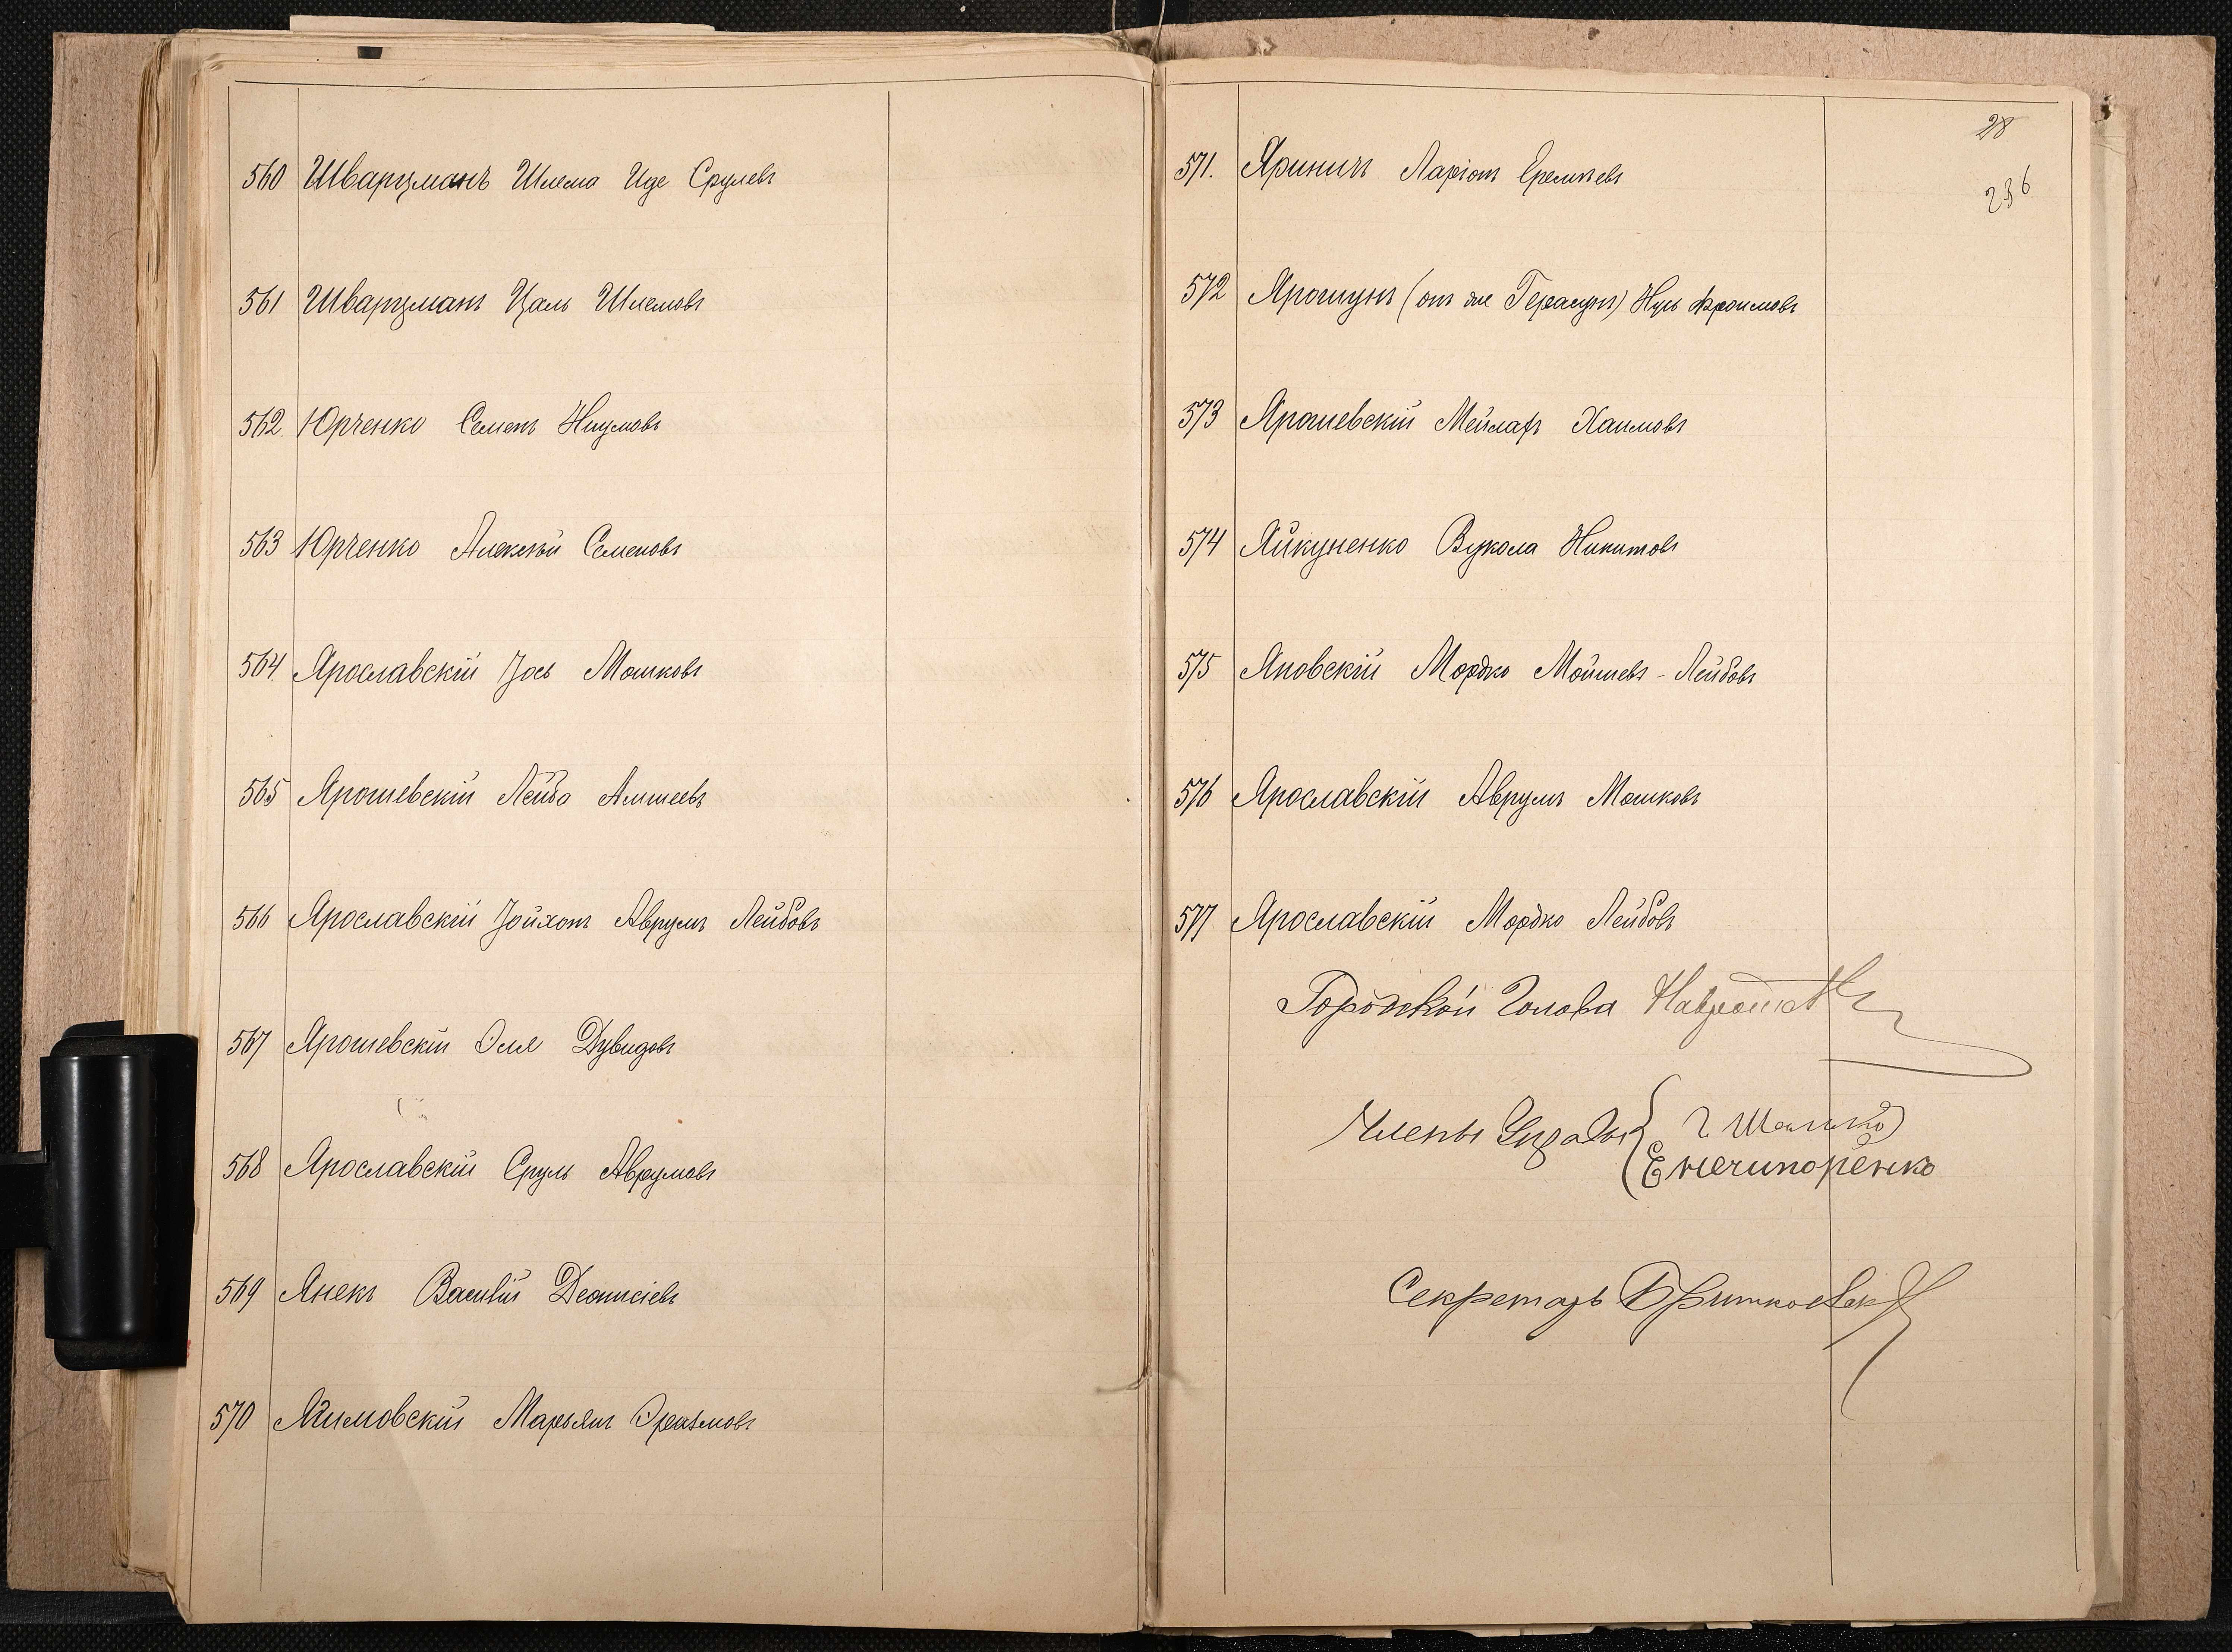 560 Шварцманъ Шлема Иде Срулевъ
561 Шварцманъ Цаль Шлемовъ
562. Юрченко Семенъ Наумовъ
563 Юрченко Алексѣй Семеновъ
564. Ярославскій Іось Мошковъ
565 Ярошевскій Лейба
566 Ярославскій Іойхонъ Аврумъ Лейбовъ
567 Ярошевскій Эля Дувидовъ
568 Ярославскій Сруль Аврумовъ
569 Янекъ Василій Деонисіевъ
570 Марьянъ Эразмовъ
28
236
571. Яриничъ Ларіонъ
572 Ярошунъ (онъ же) Нусь Фроимовъ
573 Ярошевскій Мейлахъ Хаимовъ
574 Яйкуненко Вукола Никитовъ
575 Яновскій Мордко Мойшевъ-Лейбовъ
576 Ярославскій Аврумъ Мошковъ
577 Ярославскій Мордко Лейбовъ
Городской Голова
Члены Управы
Е Нечипоренко
Секретарь